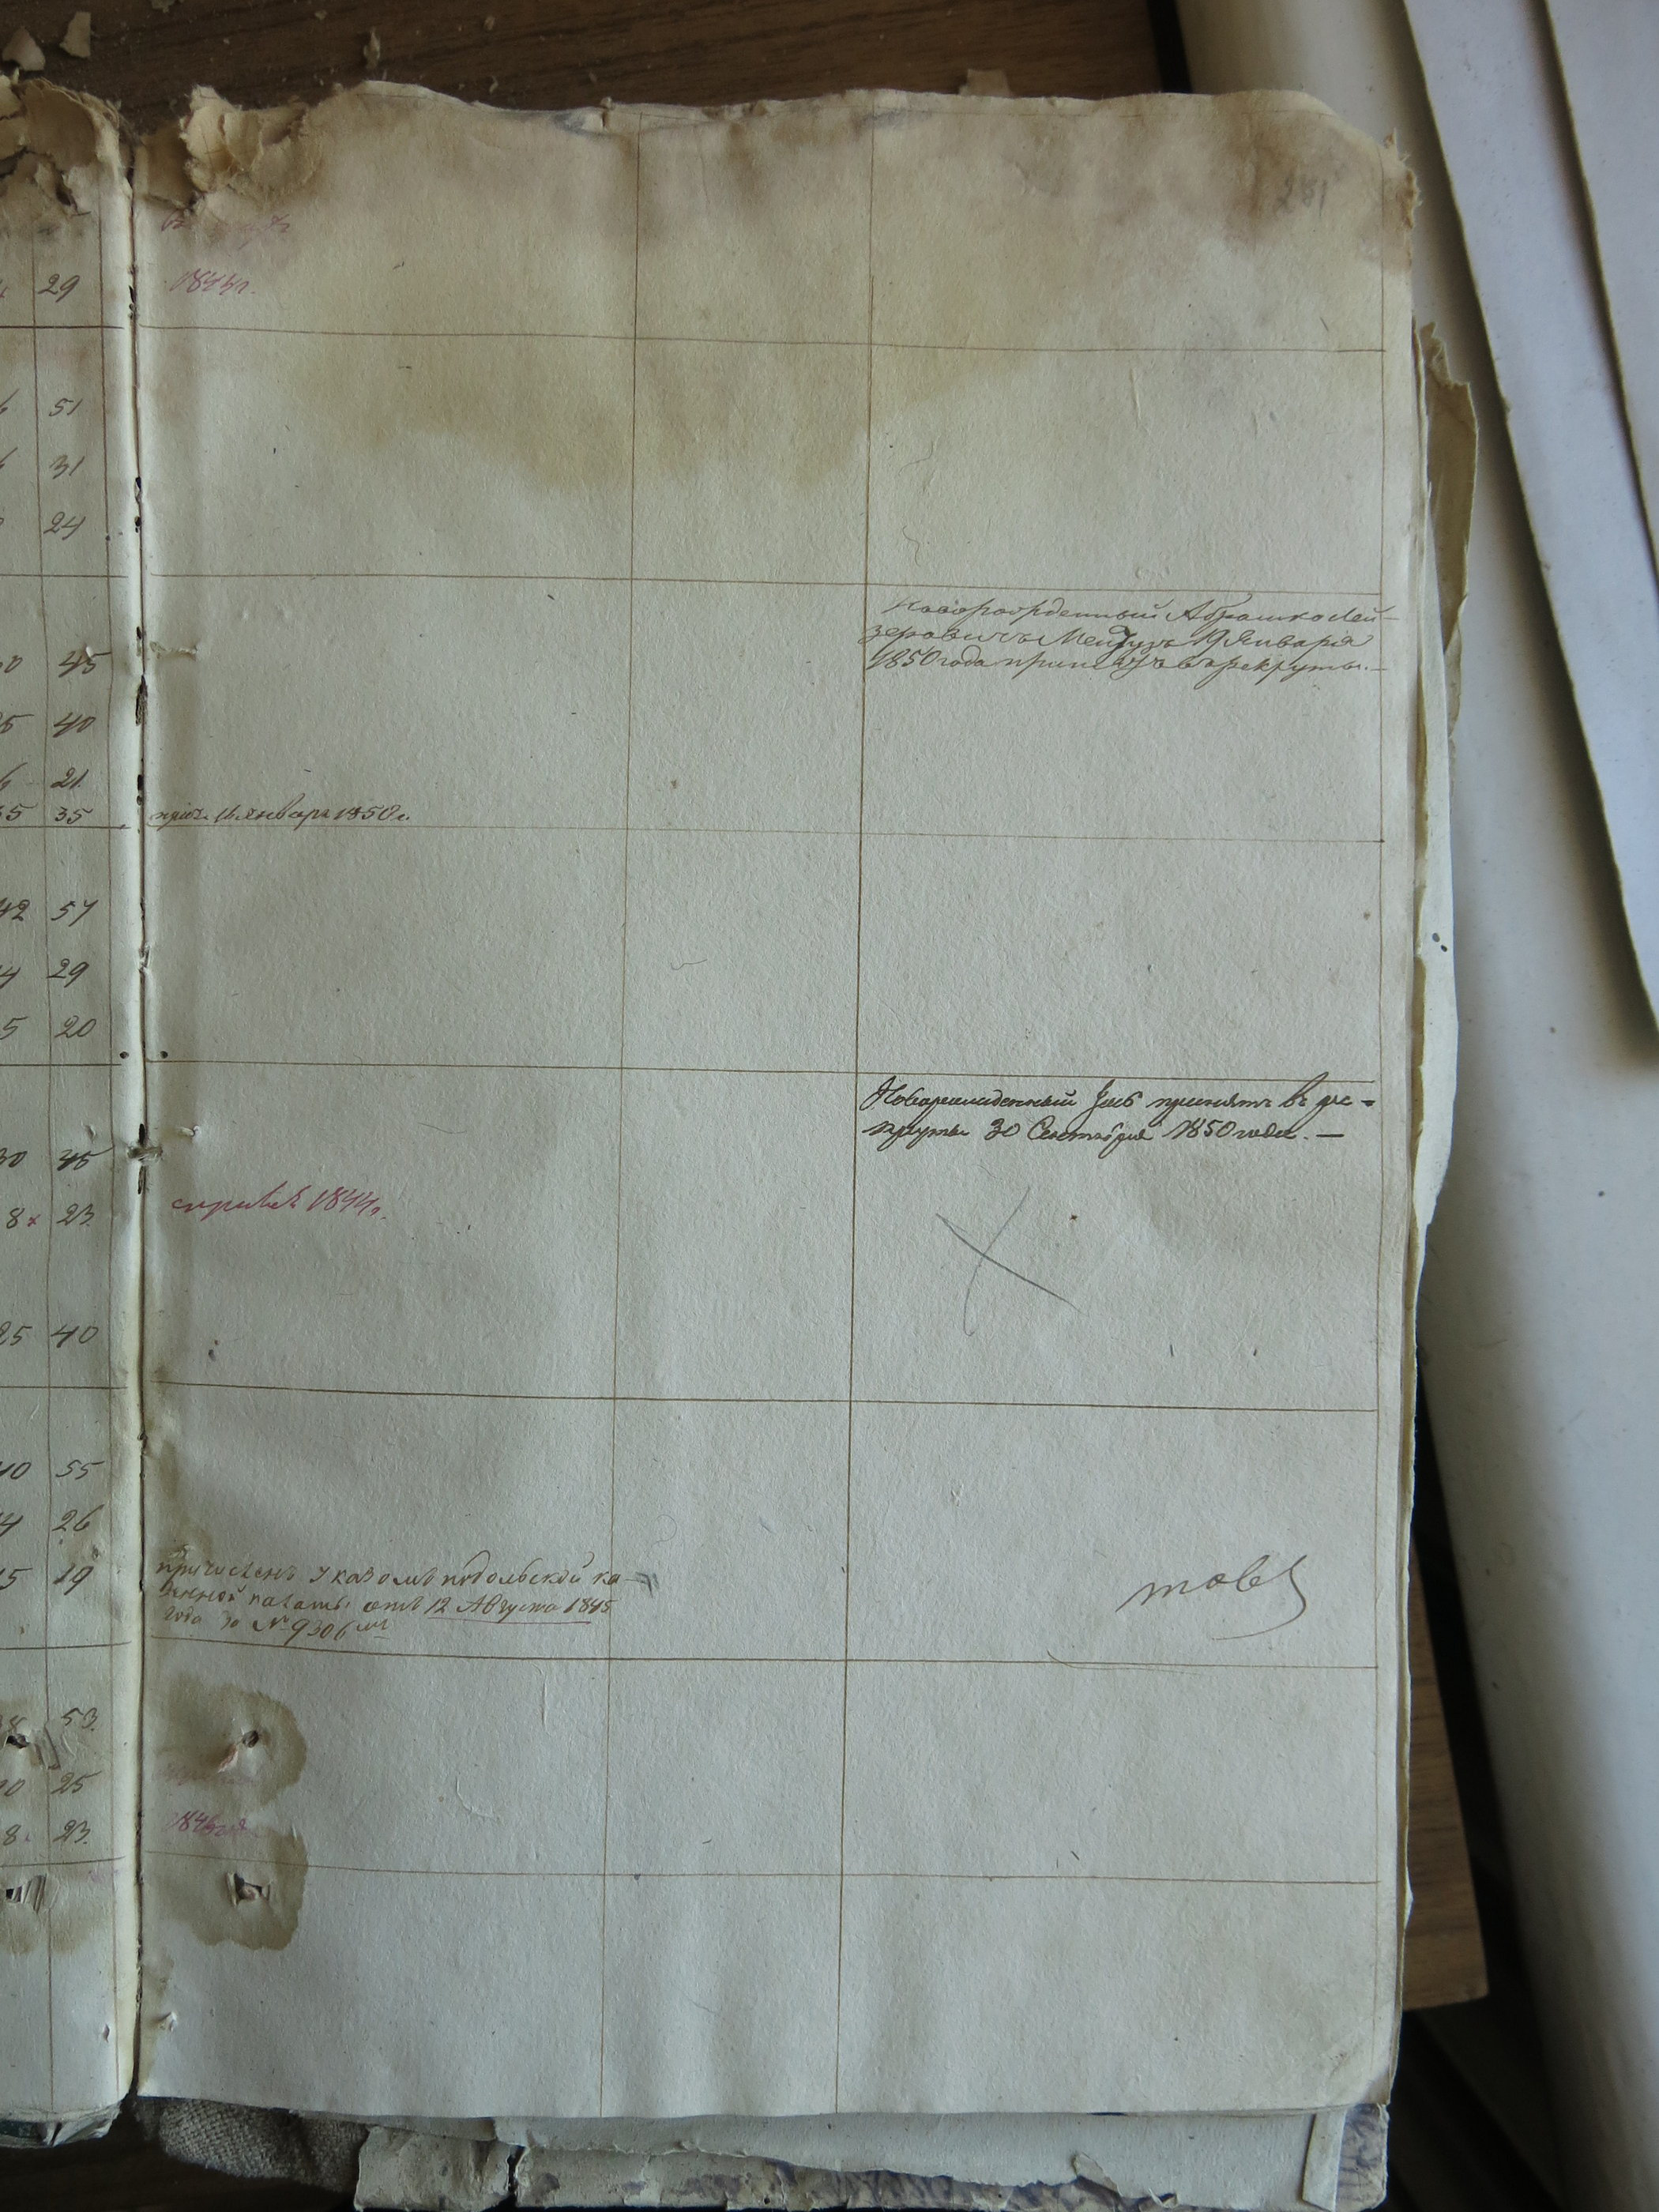 281
29
1844г.
51
31
24
Новорожденный Абрашко Лей-
зеровичъ Мендузъ 19 Января
1850 года принятъ въ рекруты.—
45
40
21
35 35 прич. 16 января 1850 г.
42 57
29
5 20
Новорожденный Якъ принятъ въ ре-
круты 30 Сентября 1850 года. —
30 45
8 23
1844г.
25 40
40 55
26
5 19
причисленъ Указомъ подольской ка-
зенной палаты отъ 12 Августа 1845
года за № 9306мъ
53.
25
1846
8. 23.